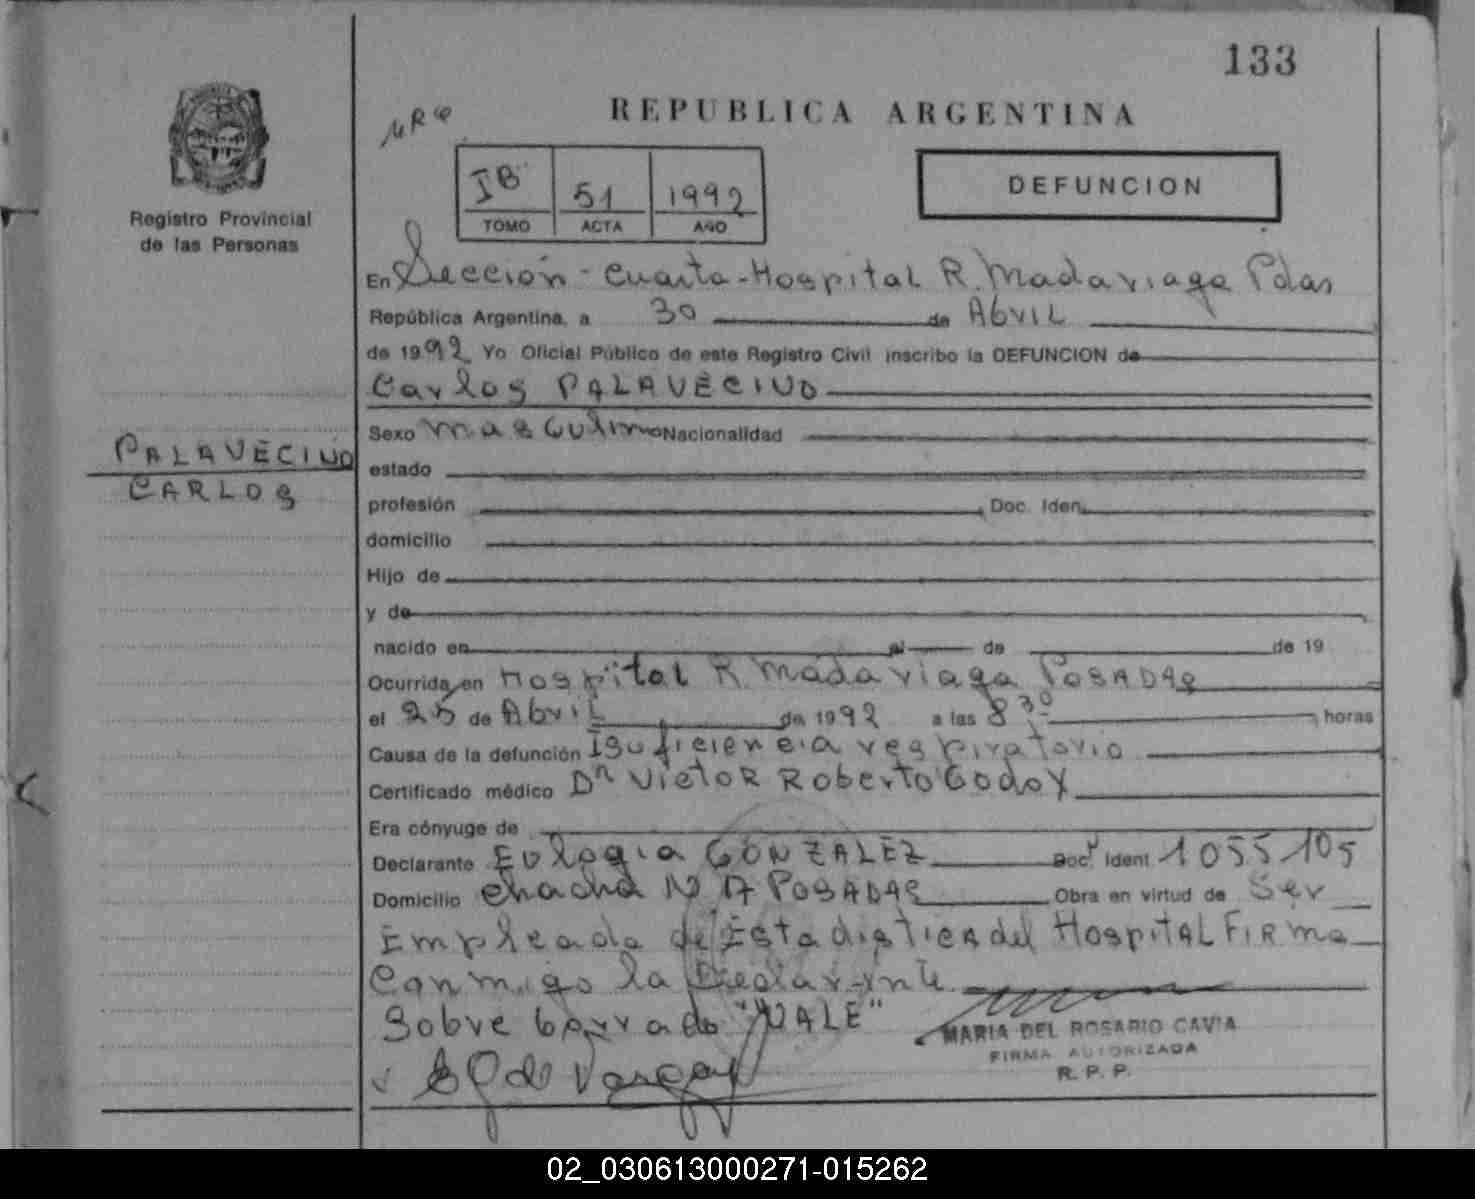 133
REPUBLICA ARGENTINA
IB 51 1992
TOMO ACTA AÑO
DEFUNCION
Registro Provincial
de las Personas
En Sección - Cuarta - Hospital R. Madariaga Pdas
República Argentina, a 30 de Abril
de 1992 Yo Oficial Público de este Registro Civil inscribo la DEFUNCION de
Carlos PALAVECINO
PALAVECINO
CARLOS
Sexo masculino Nacionalidad
estado
profesión Doc. Iden.
domicilio
Hijo de
y de
nacido en el de de 19
Ocurrida en Hospital R. Madariaga POSADAS
el 25 de Abril de 1992 a las 8 30 horas
Causa de la defunción Isuficiencia respiratorio
Certificado médico Dr Victor Roberto Godoy
Era cónyuge de
Declarante Eulogia GONZALEZ Doc. Ident 1055105
Domicilio chacha N 17 POSADAS Obra en virtud de Ser
Empleada de Estadistica del Hospital Firma
Conmigo la Declarante
Sobre borrado "VALE"
MARIA DEL ROSARIO CAVIA
FIRMA AUTORIZADA
R. P. P.
02_030613000271-015262